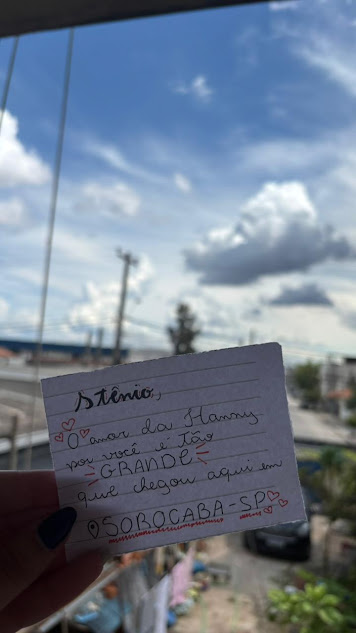 Stênio,
O amor da Hanny
por você é tão
GRANDE
que chegou aqui em
SOROCABA-SP